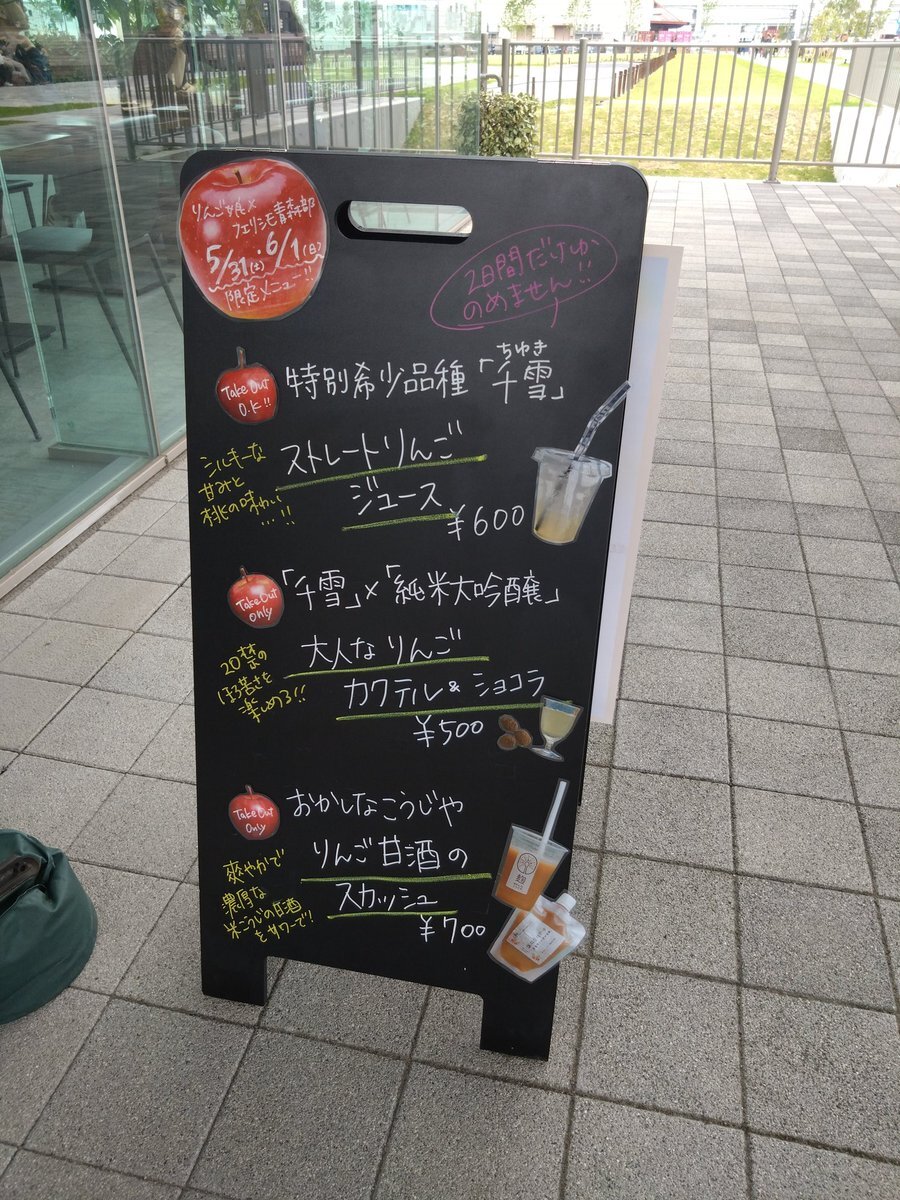 りんご娘×
フェリシモ青森部
5/31(土)・6/1(日)
限定メニュー!!
2日間だけしか
のめません!!
Take Out
O.K!!
ちゆき
特別希少品種「千雪」
シルキーな
甘みと
桃の味わい
…!!
ストレートりんご
ジュース
¥600
Take Out
Only
「千雪」×「純米大吟醸」
20禁の
ほろ苦さを
楽しめる!!
大人なりんご
カクテル & ショコラ
¥500
Take Out
Only
おかしなこうじや
爽やかで
濃厚な
米こうじの甘酒
をサワーで!
りんご甘酒の
スカッシュ
¥700